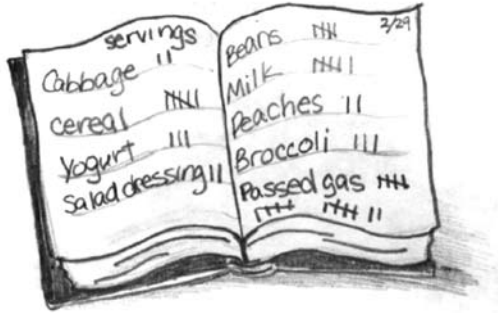 servings
Cabbage ||
cereal 卌
Yogurt |||
Salad dressing ||
2/29
Beans 卌
Milk 卌 |
Peaches ||
Broccoli |||
Passed gas 卌
卌 卌 ||